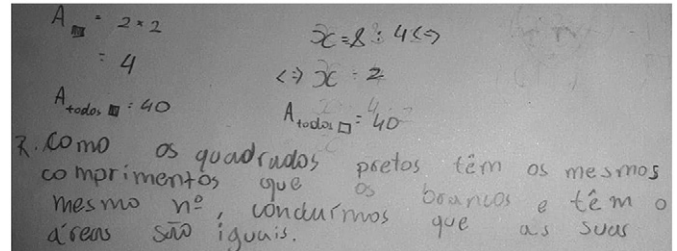 A■ = 2 × 2
x = 8 : 4 <=>
= 4
<=> x = 2
A todos ■ = 40
A todos □ = 40
R. Como os quadrados pretos têm os mesmos
comprimentos que os brancos e têm o
mesmo nº, concluímos que as suas
áreas são iguais.